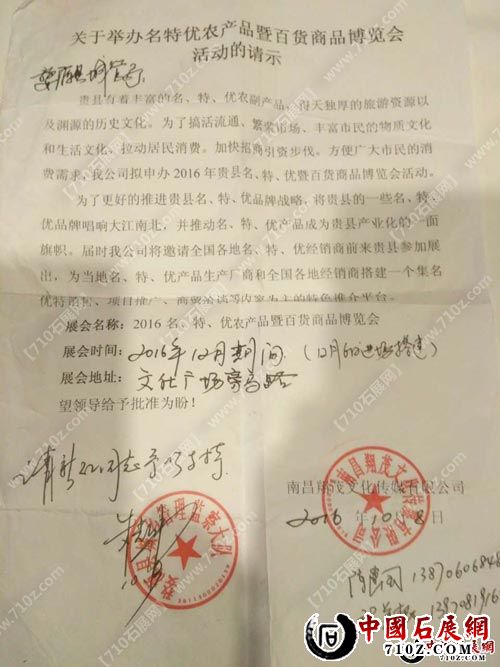 关于举办名特优农产品暨百货商品博览会
活动的请示
婺源县城管局
贵县有着丰富的名、特、优农副产品，得天独厚的旅游资源以
及渊源的历史文化。为了搞活流通、繁荣市场、丰富市民的物质文化
和生活文化、拉动居民消费。加快招商引资步伐。方便广大市民的消
费需求，我公司拟申办 2016 年贵县名、特、优暨百货商品博览会活动。
为了更好的推进贵县名、特、优品牌战略，将贵县的一些名、特、
优品牌唱响大江南北，并推动名、特、优产品成为贵县产业化的一面
旗帜。届时我公司将邀请全国各地名、特、优经销商前来贵县参加展
出，为当地名、特、优产品生产厂商和全国各地经销商搭建一个集名
优特销售、项目推广、商贸洽谈等内容为主的特色推介平台。
展会名称：2016 名、特、优农产品暨百货商品博览会
展会时间：2016年12月期间（12月6日进场搭建）
展会地址：文化广场旁马路
望领导给予批准为盼！
同志予以支持
南昌翔茂文化传媒有限公司
2016 年 10 月 8
南昌翔茂文化传媒有限公司
管理监察大队
13870606848
中國石展網
www.710z.com
[710石展网]
www.710z.com